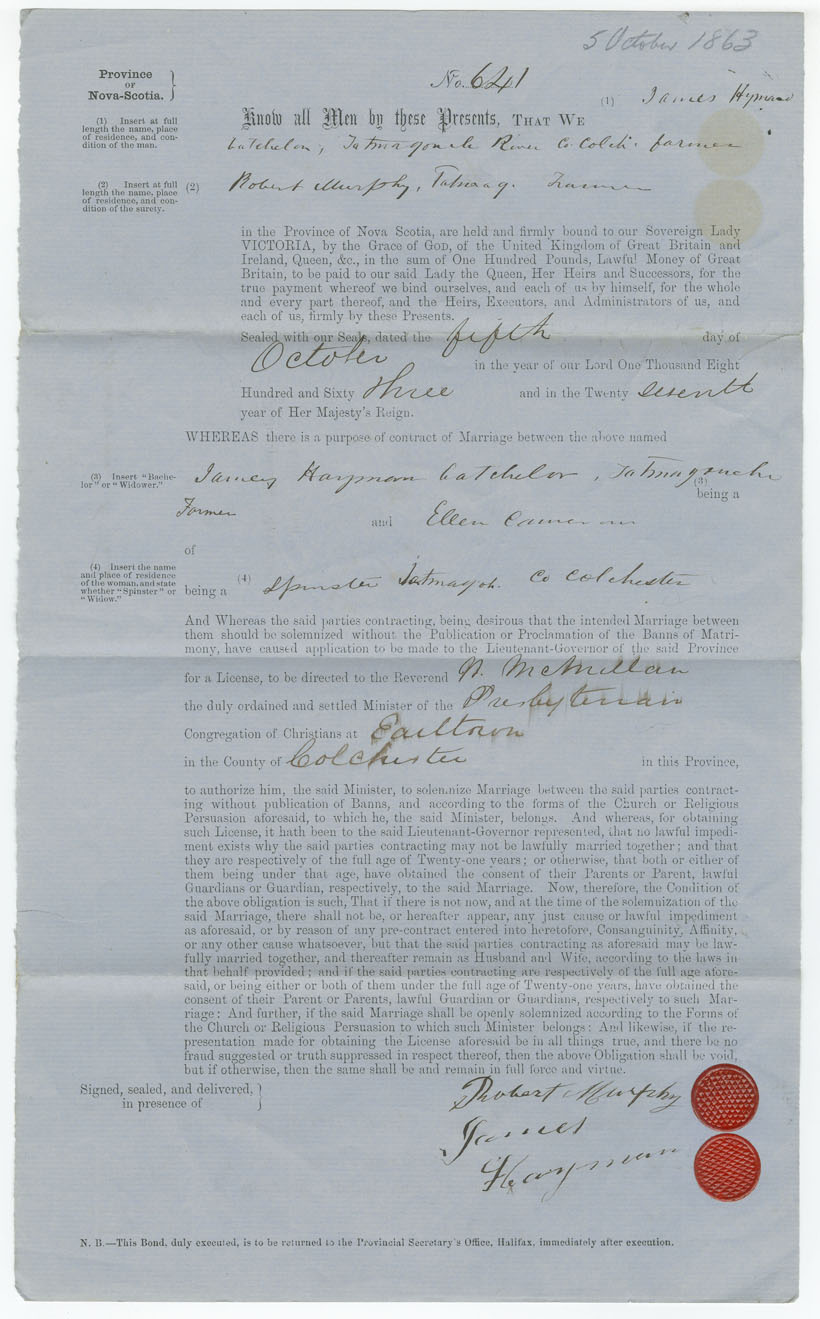 5 October 1863
Province
OF
Nova-Scotia.
No. 641
(1) James Hyman
(1) Insert at full
length the name, place
of residence, and con-
dition of the man.
Know all Men by these Presents, THAT WE
batchelor, Tatmagouche River Co Colch. farmer
(2) Insert at full
length the name, place
of residence, and con-
dition of the surety.
(2) Robert Murphy, Tatmag. Farmer
in the Province of Nova Scotia, are held and firmly bound to our Sovereign Lady
VICTORIA, by the Grace of GOD, of the United Kingdom of Great Britain and
Ireland, Queen, &c., in the sum of One Hundred Pounds, Lawful Money of Great
Britain, to be paid to our said Lady the Queen, Her Heirs and Successors, for the
true payment whereof we bind ourselves, and each of us by himself, for the whole
and every part thereof, and the Heirs, Executors, and Administrators of us, and
each of us, firmly by these Presents.
Sealed with our Seals, dated the fifth day of
October in the year of our Lord One Thousand Eight
Hundred and Sixty three and in the Twenty seventh
year of Her Majesty's Reign.
WHEREAS there is a purpose of contract of Marriage between the above named
(3) Insert "Bache-
lor" or "Widower."
James Haymam batchelor, Tatmagouche
(3)
being a
Farmer
and Ellen Cameron
of
(4) Insert the name
and place of residence
of the woman, and state
whether "Spinster" or
"Widow."
being a (4) Spinster Tatmagoh. Co Colchester
And Whereas the said parties contracting, being desirous that the intended Marriage between
them should be solemnized without the Publication or Proclamation of the Banns of Matri-
mony, have caused application to be made to the Lieutenant-Governor of the said Province
for a License, to be directed to the Reverend W. McMillan
the duly ordained and settled Minister of the Presbyterian
Congregation of Christians at Earltown
in the County of Colchester in this Province,
to authorize him, the said Minister, to solemnize Marriage between the said parties contract-
ing without publication of Banns, and according to the forms of the Church or Religious
Persuasion aforesaid, to which he, the said Minister, belongs. And whereas, for obtaining
such License, it hath been to the said Lieutenant-Governor represented, that no lawful impedi-
ment exists why the said parties contracting may not be lawfully married together; and that
they are respectively of the full age of Twenty-one years; or otherwise, that both or either of
them being under that age, have obtained the consent of their Parents or Parent, lawful
Guardians or Guardian, respectively, to the said Marriage. Now, therefore, the Condition of
the above obligation is such, That if there is not now, and at the time of the solemnization of the
said Marriage, there shall not be, or hereafter appear, any just cause or lawful impediment
as aforesaid, or by reason of any pre-contract entered into heretofore, Consanguinity, Affinity,
or any other cause whatsoever, but that the said parties contracting as aforesaid may be law-
fully married together, and thereafter remain as Husband and Wife, according to the laws in
that behalf provided; and if the said parties contracting are respectively of the full age afore-
said, or being either or both of them under the full age of Twenty-one years, have obtained the
consent of their Parent or Parents, lawful Guardian or Guardians, respectively to such Mar-
riage: And further, if the said Marriage shall be openly solemnized according to the Forms of
the Church or Religious Persuasion to which such Minister belongs: And likewise, if the re-
presentation made for obtaining the License aforesaid be in all things true, and there be no
fraud suggested or truth suppressed in respect thereof, then the above Obligation shall be void,
but if otherwise, then the same shall be and remain in full force and virtue.
Signed, sealed, and delivered,
in presence of
Robert Murphy
James
Hayman
N. B.—This Bond, duly executed, is to be returned to the Provincial Secretary's Office, Halifax, immediately after execution.